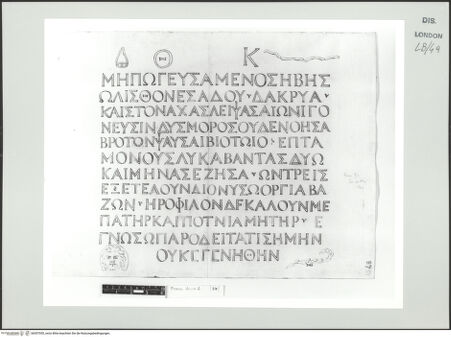 DIS.
LONDON
LB/49
Θ Κ
ΜΗΠΩΓΕΥΣΑΜΕΝΟΣΗΒΗΣ
ΩΛΙΣΘΟΝΕΣΑΔΟΥ·ΔΑΚΡΥΑ·
ΚΑΙΣΤΟΝΑΧΑΣΛΕΙΨΑΣΑΙΩΝΙΓΟ
ΝΕΥΣΙΝΔΥΣΜΟΡΟΣΟΥΔΕΝΟΗΣΑ
ΒΡΟΤΩΝΨΑΥΣΑΙΒΙΟΤΩΙΟ·ΕΠΤΑ
ΜΟΝΟΥΣΛΥΚΑΒΑΝΤΑΣΔΥΩ
ΚΑΙΜΗΝΑΣΕΖΗΣΑ·ΩΝΤΡΕΙΣ
ΕΞΕΤΕΛΟΥΝΔΙΟΝΥΣΩΟΡΓΙΑΒΑ
ΖΩΝ·ΗΡΟΦΙΛΟΝΔΕΚΑΛΟΥΝΜΕ
ΠΑΤΗΡΚΑΙΠΟΤΝΙΑΜΗΤΗΡ·Ε
ΓΝΩΣΩΠΑΡΟΔΕΙΤΑΤΙΣΗΜΗΝ
ΟΥΚΕΓΕΝΗΘΗΝ